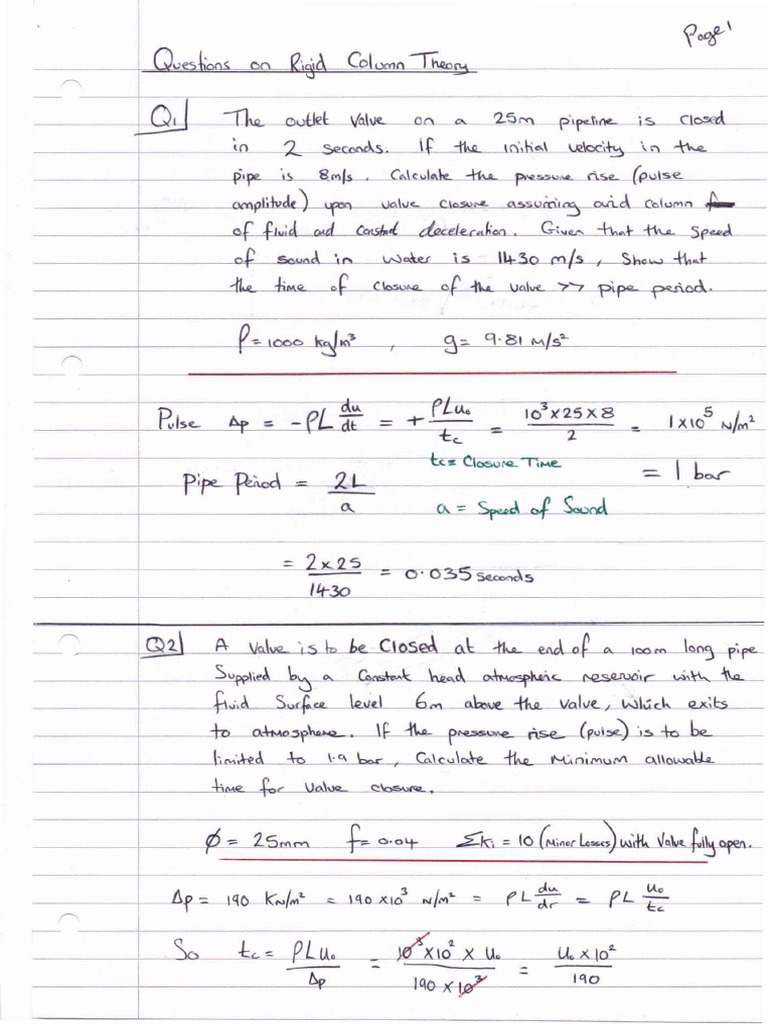 Page 1
Questions on Rigid Column Theory
Q1 The outlet valve on a 25m pipeline is closed
in 2 seconds. If the initial velocity in the
pipe is 8m/s. Calculate the pressure rise (pulse
amplitude) upon valve closure assuming a rigid column
of fluid and constant deceleration. Given that the speed
of sound in water is 1430 m/s, show that
the time of closure of the valve >> pipe period.
ρ = 1000 kg/m³ , g = 9.81 m/s²
Pulse Δp = -ρL du/dt = + ρLu₀/tc = 10³×25×8/2 = 1×10⁵ N/m²
tc = Closure Time = 1 bar
Pipe Period = 2L/a a = Speed of Sound
= 2×25/1430 = 0.035 seconds
Q2 A valve is to be Closed at the end of a 100m long pipe
Supplied by a constant head atmospheric reservoir with the
fluid surface level 6m above the valve, which exits
to atmosphere. If the pressure rise (pulse) is to be
limited to 1.9 bar, Calculate the minimum allowable
time for valve closure.
φ = 25mm f = 0.04 Σki = 10 (Minor Losses) with valve fully open.
Δp = 190 KN/m² = 190 ×10³ N/m² = ρL du/dr = ρL u₀/tc
So tc = ρLu₀/Δp = 10³×10² × u₀/190 × 10³ = u₀ × 10²/190